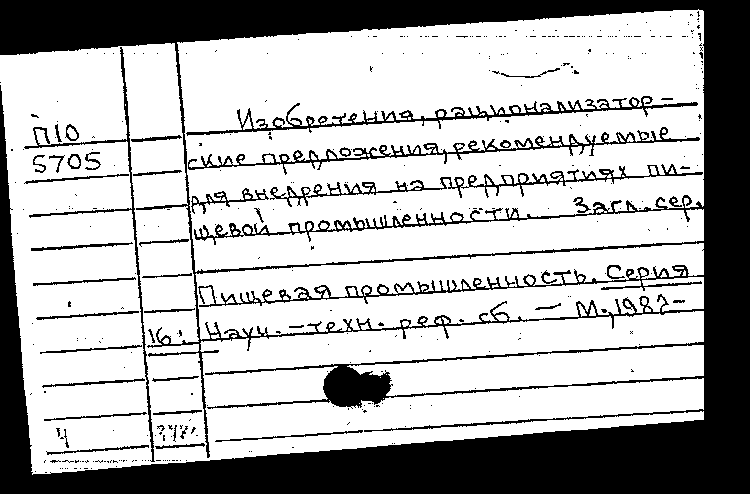 П10
5705
Изобретения, рационализатор-
ские предложения, рекомендуемые
для внедрения на предприятиях пи-
щевой промышленности. Загл. сер.
Пищевая промышленность. Серия
16: Науч.-техн. реф. сб. — М., 1982-
Ч